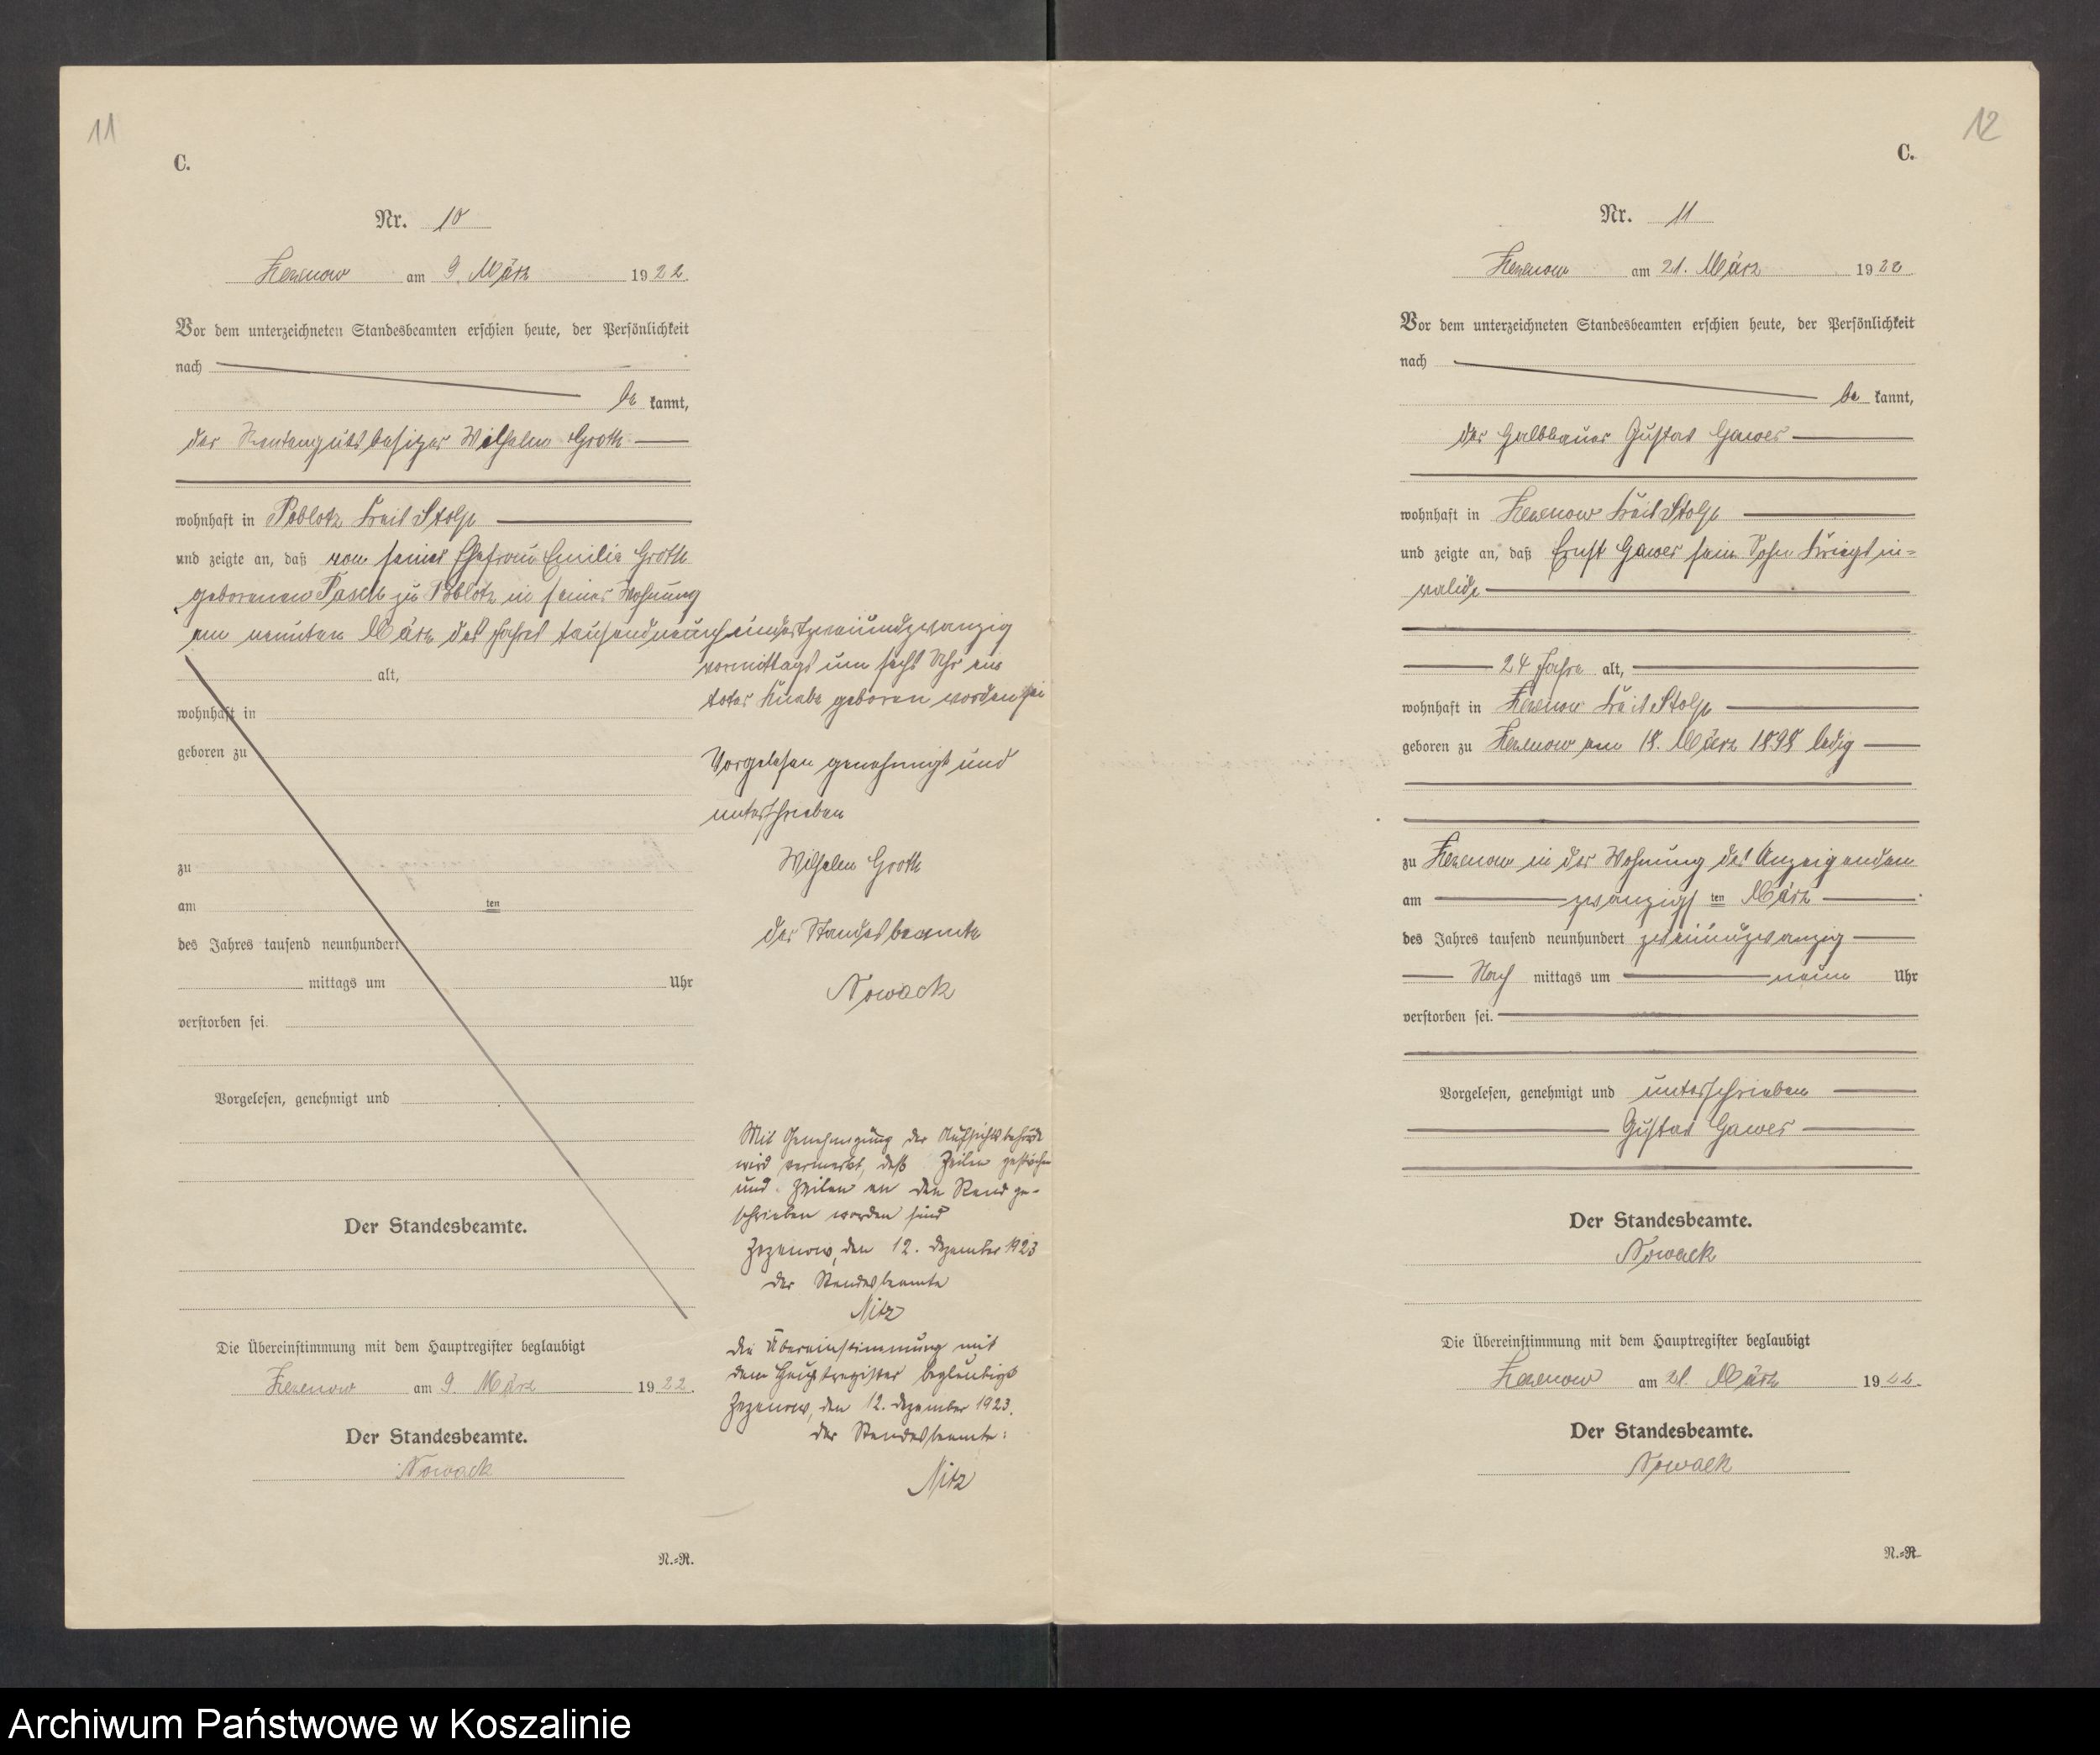 11
C.
Nr. 10
Zezenow am 9. März 1922.
Vor dem unterzeichneten Standesbeamten erschien heute, der Persönlichkeit
nach
be kannt,
der Rentengutsbesitzer Wilhelm Groth
wohnhaft in Poblotz Kreis Stolp
und zeigte an, daß von seiner Ehefrau Emilie Groth
geborenen Pasch zu Poblotz in seiner Wohnung
am neunten März des Jahres tausendneunhundertzweiundzwanzig
vormittags um sechs Uhr ein
toter Knabe geboren worden sei
alt,
wohnhaft in
geboren zu
Vorgelesen genehmigt und
unterschrieben
Wilhelm Groth
der Standesbeamte
Nowack
zu
am ten
des Jahres tausend neunhundert
mittags um Uhr
verstorben sei.
Vorgelesen, genehmigt und
Der Standesbeamte.
Die Übereinstimmung mit dem Hauptregister beglaubigt
Zezenow am 9. März 1922.
Der Standesbeamte.
Nowack
Mit Genehmigung der Aufsichtsbehörde
wird vermerkt, daß Zeilen gestrichen
und Zeilen an den Rand ge-
schrieben worden sind
Zezenow, den 12. Dezember 1923
Der Standesbeamte
Nitz
Die Übereinstimmung mit
dem Hauptregister beglaubigt
Zezenow, den 12. Dezember 1923.
Der Standesbeamte:
Nitz
N.=R.
12
C.
Nr. 11
Zezenow am 21. März 1922
Vor dem unterzeichneten Standesbeamten erschien heute, der Persönlichkeit
nach
be kannt,
der Halbbauer Gustav Gawer
wohnhaft in Zezenow Kreis Stolp
und zeigte an, daß Ernst Gawer sein Sohn Kriegsin=
valide
24 Jahre alt,
wohnhaft in Zezenow Kreis Stolp
geboren zu Zezenow am 18. März 1898 ledig
zu Zezenow in der Wohnung des Anzeigenden
am zwanzigs ten März
des Jahres tausend neunhundert zweiundzwanzig
Nach mittags um neun Uhr
verstorben sei.
Vorgelesen, genehmigt und unterschrieben
Gustav Gawer
Der Standesbeamte.
Nowack
Die Übereinstimmung mit dem Hauptregister beglaubigt
Zezenow am 21. März 1922.
Der Standesbeamte.
Nowack
N.=R.
Archiwum Państwowe w Koszalinie